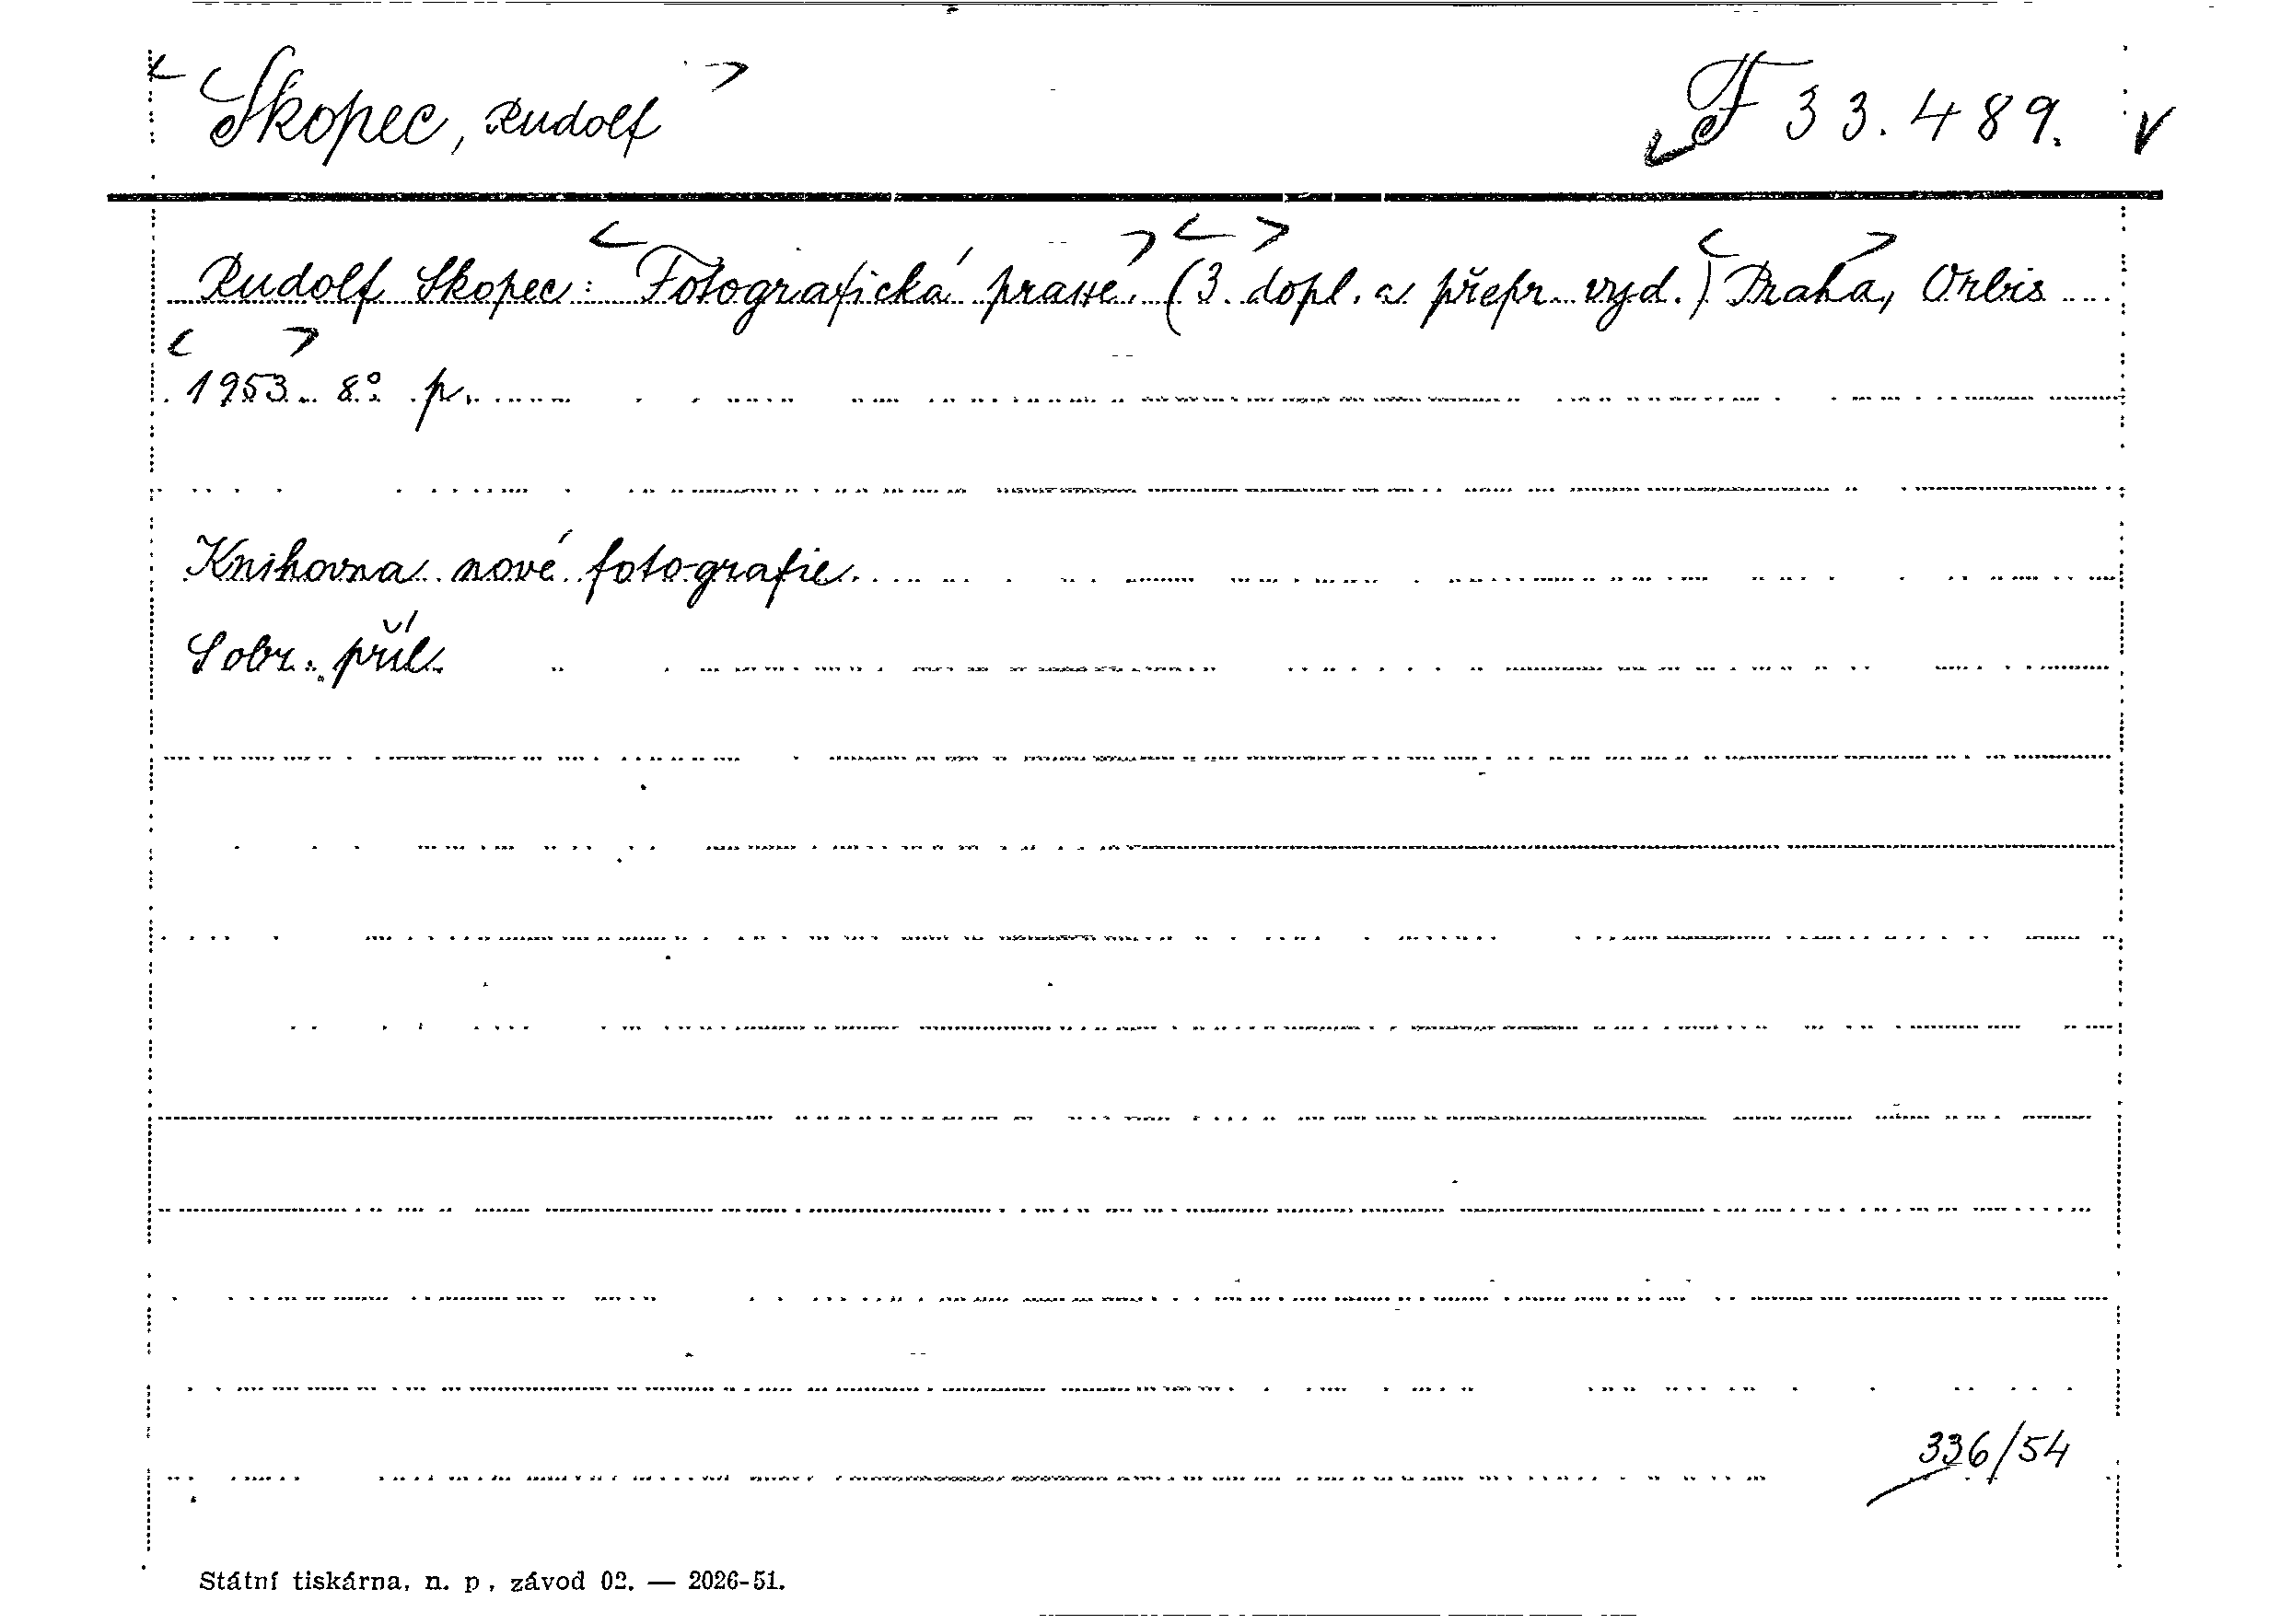 Skopec, Rudolf F 33.489.
Rudolf Skopec: Fotografická praxe. (3. dopl. a přepr. vyd.) Praha, Orbis
1953. 8° p.
Knihovna nové fotografie.
S obr. příl.
336/54
Státní tiskárna, n. p., závod 02. — 2026-51.